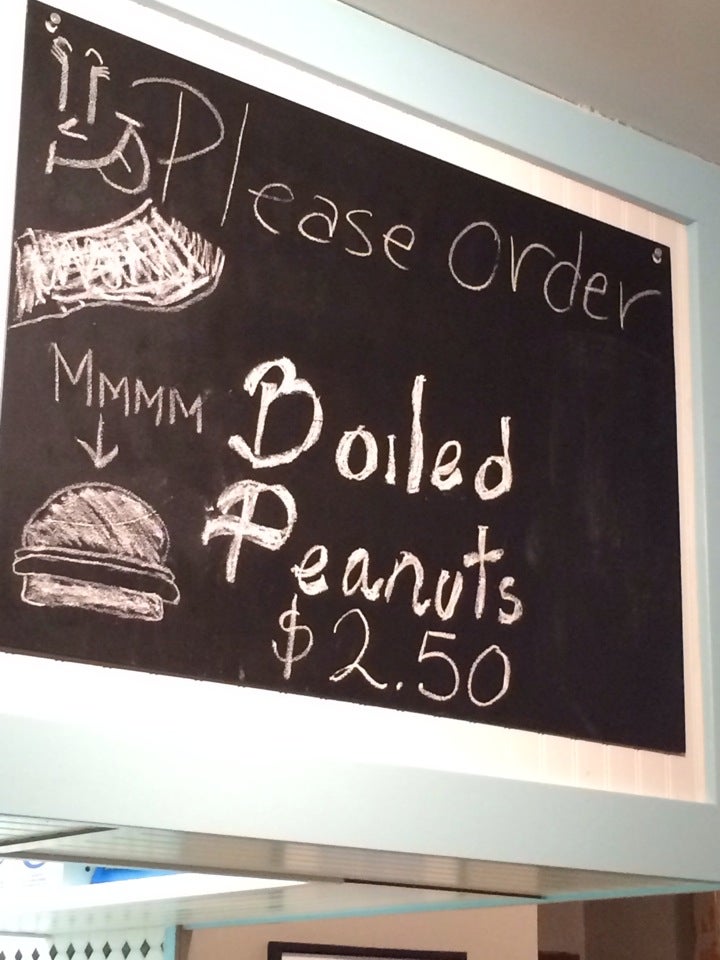 Please Order
MMMMM
Boiled
Peanuts
$2.50